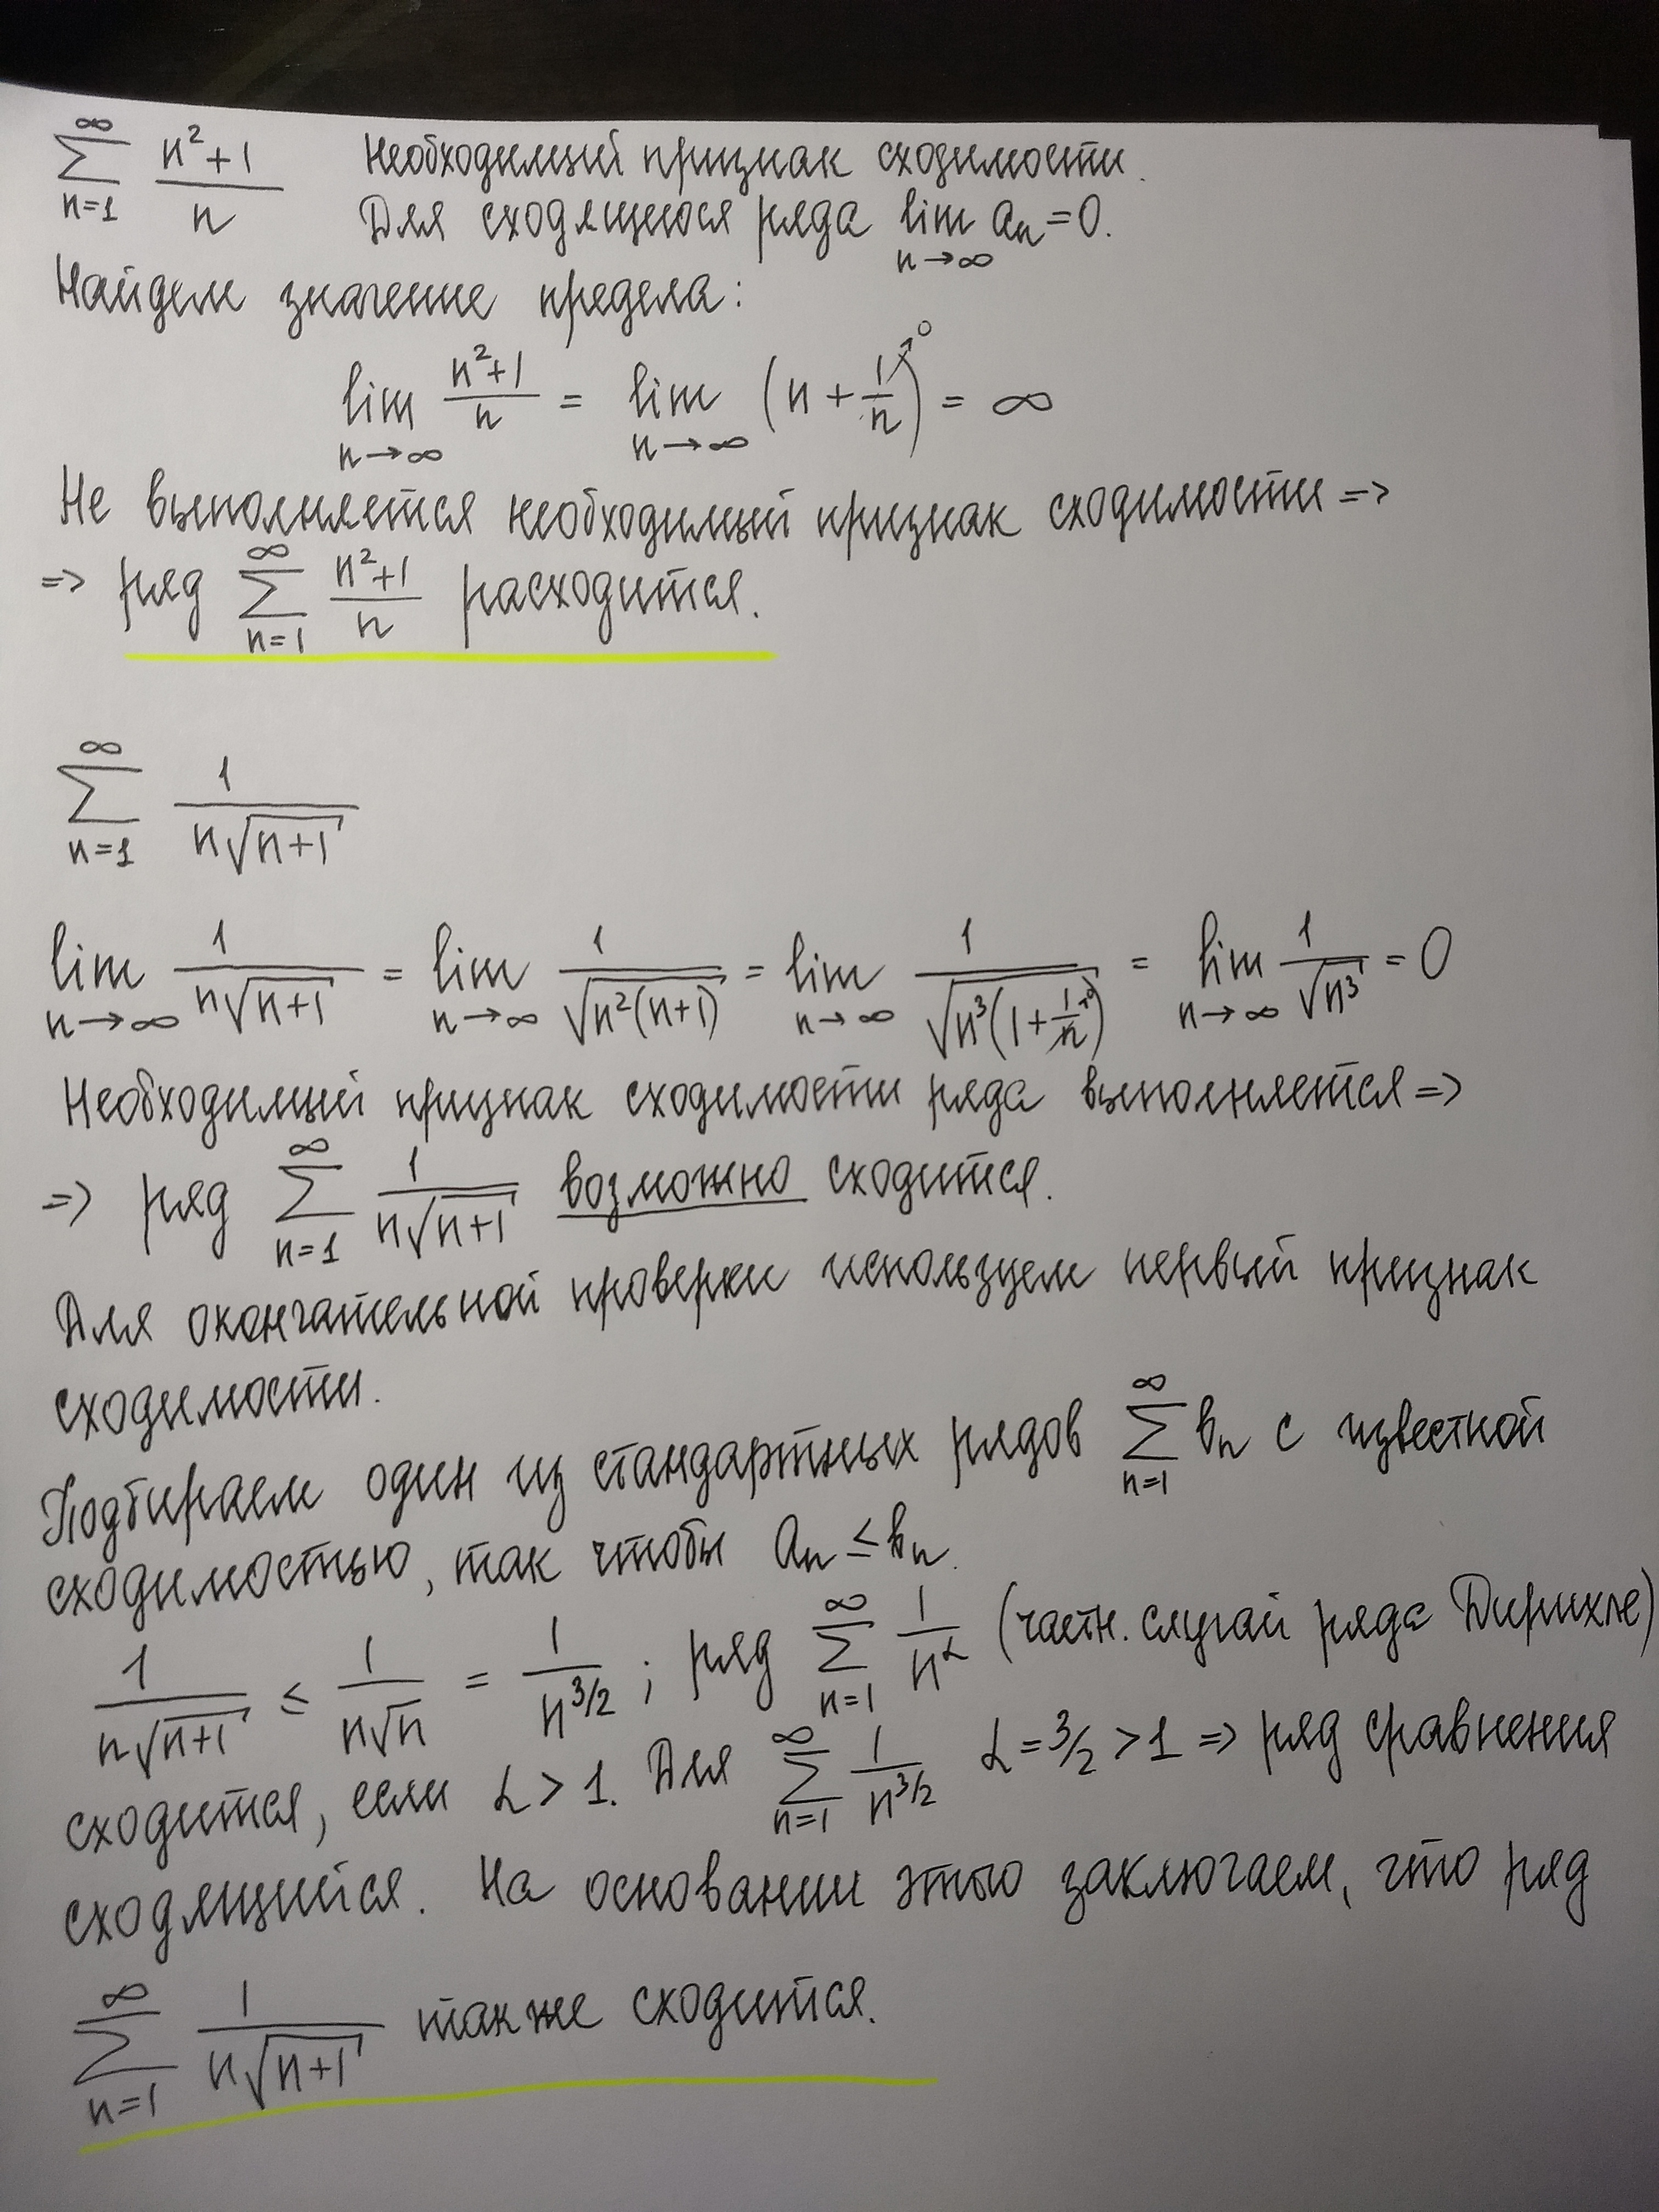 ∑_{n=1}^{∞} (n²+1)/n Необходимый признак сходимости.
Для сходящегося ряда lim_{n→∞} aₙ=0.
Найдем значение предела:
lim_{n→∞} (n²+1)/n = lim_{n→∞} (n + 1/n^{↗0}) = ∞
Не выполняется необходимый признак сходимости =>
=> ряд ∑_{n=1}^{∞} (n²+1)/n расходится.
∑_{n=1}^{∞} 1/(n√(n+1))
lim_{n→∞} 1/(n√(n+1)) = lim_{n→∞} 1/√(n²(n+1)) = lim_{n→∞} 1/√(n³(1+1/n^{→0})) = lim_{n→∞} 1/√(n³) = 0
Необходимый признак сходимости ряда выполняется =>
=> ряд ∑_{n=1}^{∞} 1/(n√(n+1)) возможно сходится.
Для окончательной проверки используем первый признак
сходимости.
Подбираем один из стандартных рядов ∑_{n=1}^{∞} bₙ с известной
сходимостью, так чтобы aₙ ≤ bₙ.
1/(n√(n+1)) ≤ 1/(n√n) = 1/n^{3/2} ; ряд ∑_{n=1}^{∞} 1/n^α (частн. случай ряда Дирихле)
сходится, если α > 1. Для ∑_{n=1}^{∞} 1/n^{3/2} α = 3/2 > 1 => ряд сравнения
сходящийся. На основании этого заключаем, что ряд
∑_{n=1}^{∞} 1/(n√(n+1)) также сходится.